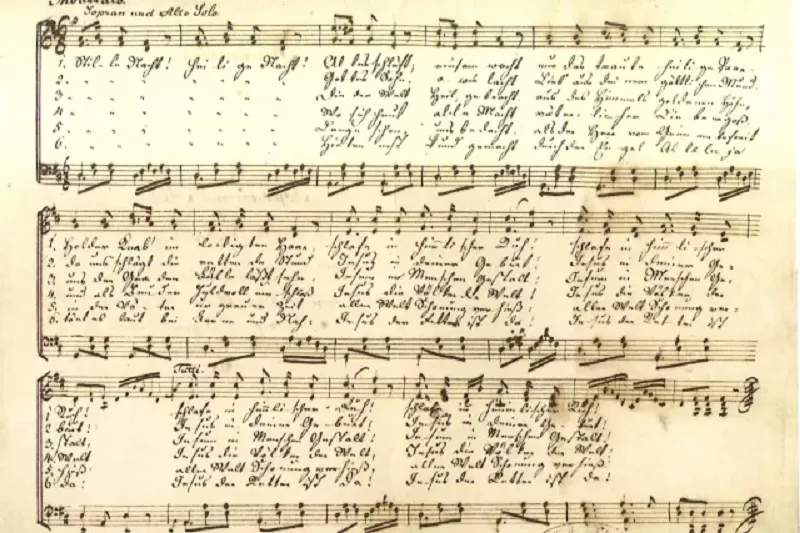 Moderato.
Sopran und Alto Solo.
1. Stille Nacht! Heilige Nacht! Alles schläft, einsam wacht nur das traute heilige Paar.
2. " " " " " " Gottes Sohn, o wie lacht Lieb aus deinem göttlichen Mund,
3 " " " " " " Die der Welt Heil gebracht, aus des Himmels goldenen Höhn,
4 " " " " " " Wo sich heut alle Macht väterlicher Liebe ergoß,
5 " " " " " " Lange schon uns bedacht, als der Herr vom Grimme befreit
6 " " " " " " Hirten erst kund gemacht durch der Engel Alleluja
1. Holder Knab im lockigten Haar, schlafe in himmlischer Ruh! schlafe in himmlischer
2. Da uns schlägt die rettende Stund Jesus in deiner Geburt! Jesus in deiner Ge-
3. uns der Gnaden Fülle läßt sehn Jesum in Menschen Gestalt! Jesum in Menschen Ge-
4. und als Bruder huldvoll umschloß Jesus die Völker der Welt! Jesus die Völker der
5. in der Väter urgrauer Zeit aller Welt Schonung verhieß: aller Welt Schonung ver-
6. tönt es laut bei Ferne und Nah: Jesus der Retter ist da! Jesus der Retter ist
Tutti.
1 Ruh! schlafe in himmlischer Ruh! schlafe in himmlischer Ruh!
2. burt! Jesus in deiner Geburt! Jesus in deiner Geburt!
3. stalt, Jesum in Menschen Gestalt! Jesum in Menschen Gestalt!
4. Welt Jesus die Völker der Welt, Jesus die Völker der Welt!
5. hieß aller Welt Schonung verhieß, aller Welt Schonung verhieß.
6. da! Jesus der Retter ist da! Jesus der Retter ist da!